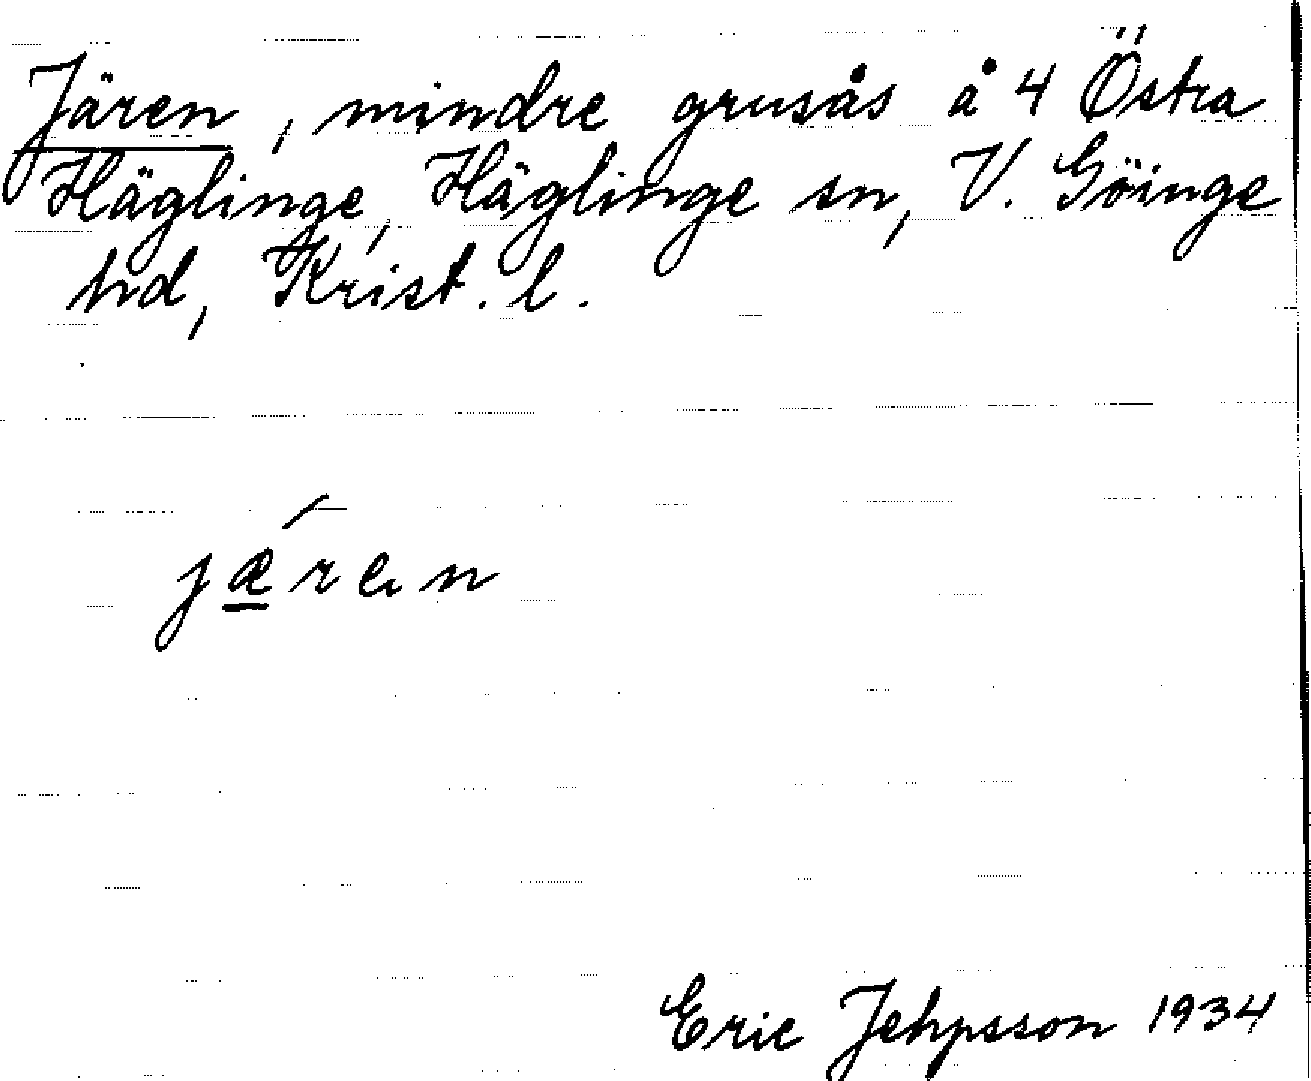 Jären, mindre grusås å 4 Östra
Häglinge, Häglinge sn, V. Göinge
hd, Krist. l.
jǽ̱ren
Eric Jehpsson 1934